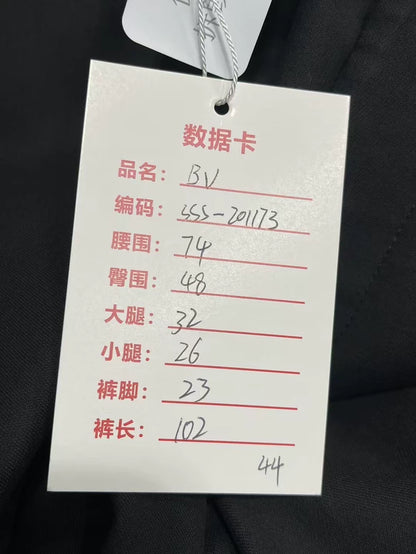 数据卡
品名：BV
编码：SSS-201173
腰围：74
臀围：48
大腿：32
小腿：26
裤脚：23
裤长：102
44